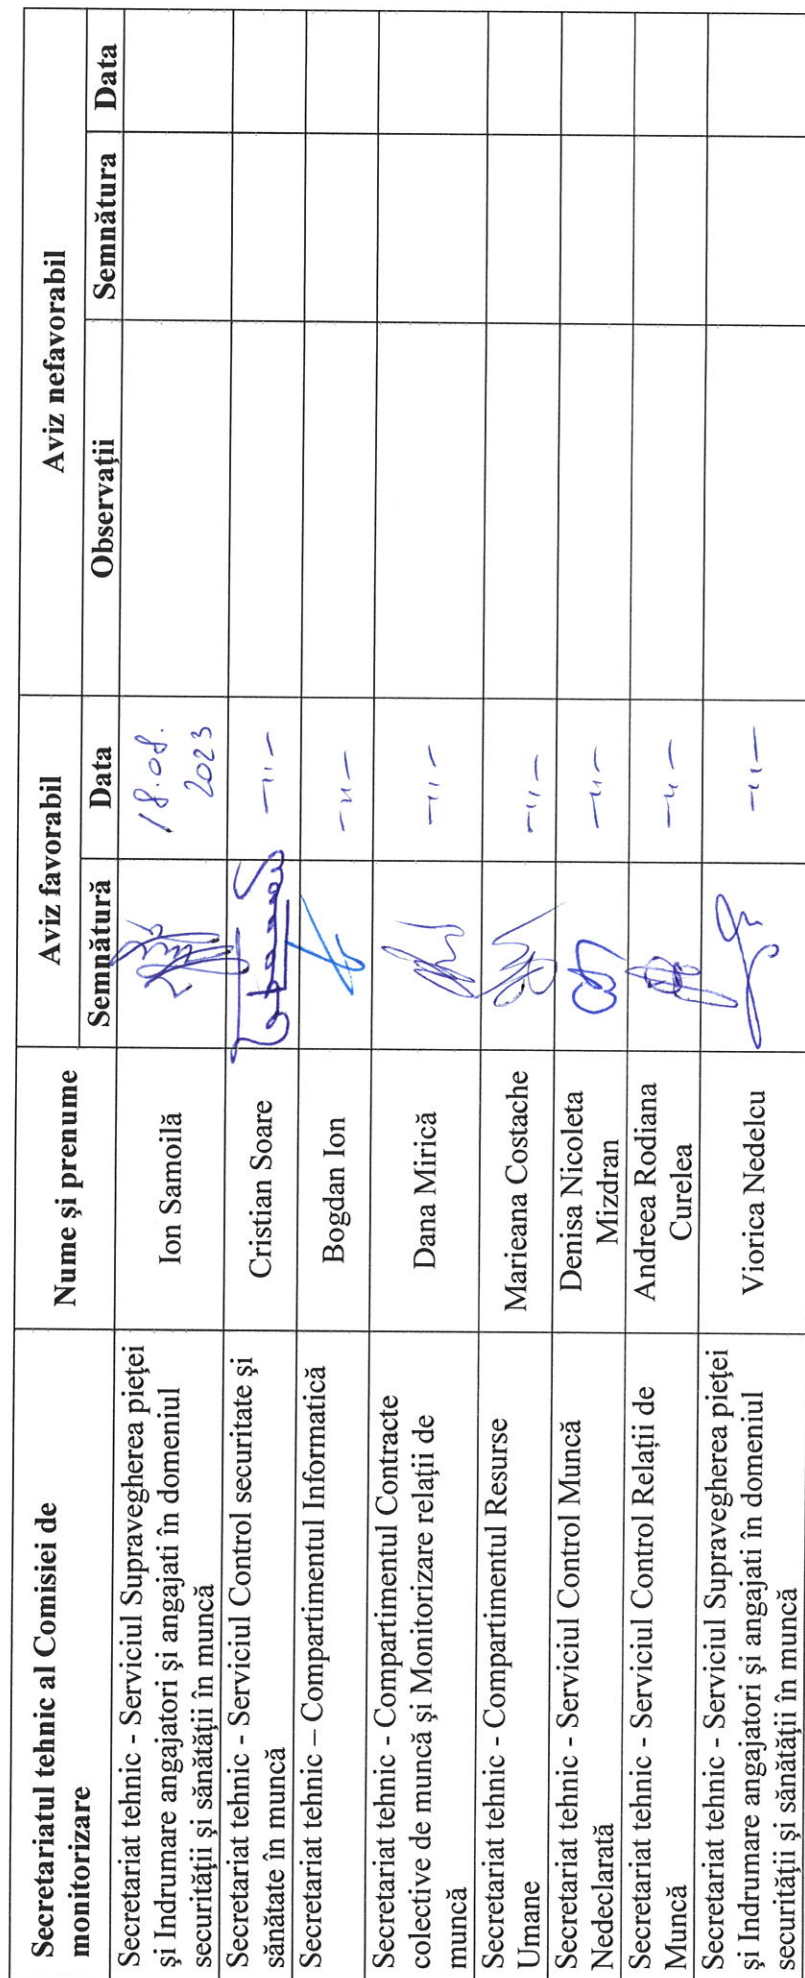 Secretariatul tehnic al Comisiei de
monitorizare
Nume şi prenume
Aviz favorabil
Aviz nefavorabil
Semnătură
Data
Observaţii
Semnătura
Data
Secretariat tehnic - Serviciul Supravegherea pieţei
şi Indrumare angajatori şi angajati în domeniul
securităţii şi sănătăţii în muncă
Ion Samoilă
18.08.
2023
Secretariat tehnic - Serviciul Control securitate şi
sănătate în muncă
Cristian Soare
-"-
Secretariat tehnic – Compartimentul Informatică
Bogdan Ion
-"-
Secretariat tehnic - Compartimentul Contracte
colective de muncă şi Monitorizare relaţii de
muncă
Dana Mirică
-"-
Secretariat tehnic - Compartimentul Resurse
Umane
Marieana Costache
-"-
Secretariat tehnic - Serviciul Control Muncă
Nedeclarată
Denisa Nicoleta
Mizdran
-"-
Secretariat tehnic - Serviciul Control Relaţii de
Muncă
Andreea Rodiana
Curelea
-"-
Secretariat tehnic - Serviciul Supravegherea pieţei
şi Indrumare angajatori şi angajati în domeniul
securităţii şi sănătăţii în muncă
Viorica Nedelcu
-"-